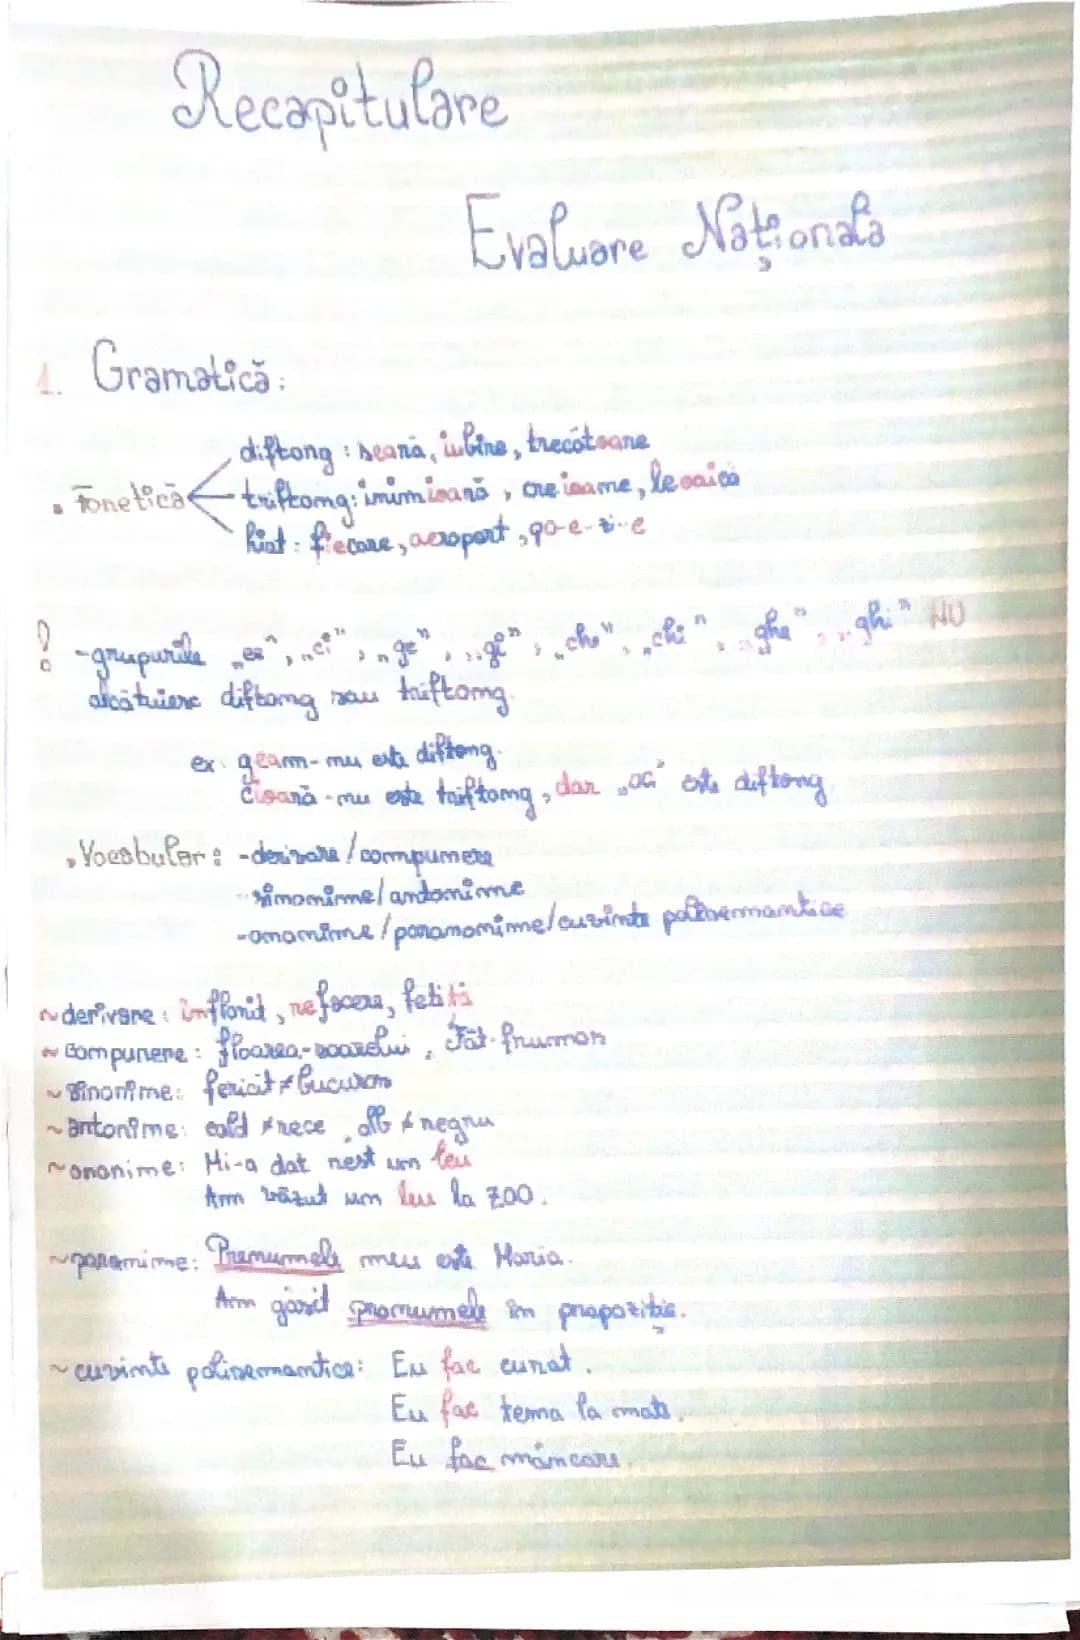 Recapitulare
Evaluare Națională
1. Gramatică:
diftong: seară, iubire, trecătoare
Fonetică triftong: inimioară, creioane, leoaică
hiat: fiecare, aeroport, po-e-zi-e
! -grupurile „ce", „ci", „ge", „gi", „che", „chi", „ghe", „ghi" NU
alcătuiesc diftong sau triftong.
ex: geam - nu este diftong.
cioară - nu este triftong, dar „oa" este diftong
Vocabular: -derivare/compunere
-sinonime/antonime
-omonime/paronomime/cuvinte polisemantice
~derivare: înflorit, refacere, fetiță
~compunere: floarea-soarelui, Făt-frumos
~sinonime: fericit ≠ bucuros
~antonime: cald ≠ rece, alb ≠ negru
~ononime: Mi-a dat rest un leu
Am văzut un leu la ZOO.
~paronime: Prenumele meu este Maria.
Am găsit pronumele în propoziție.
~cuvinte polisemantice: Eu fac curat.
Eu fac tema la mate.
Eu fac mâncare.